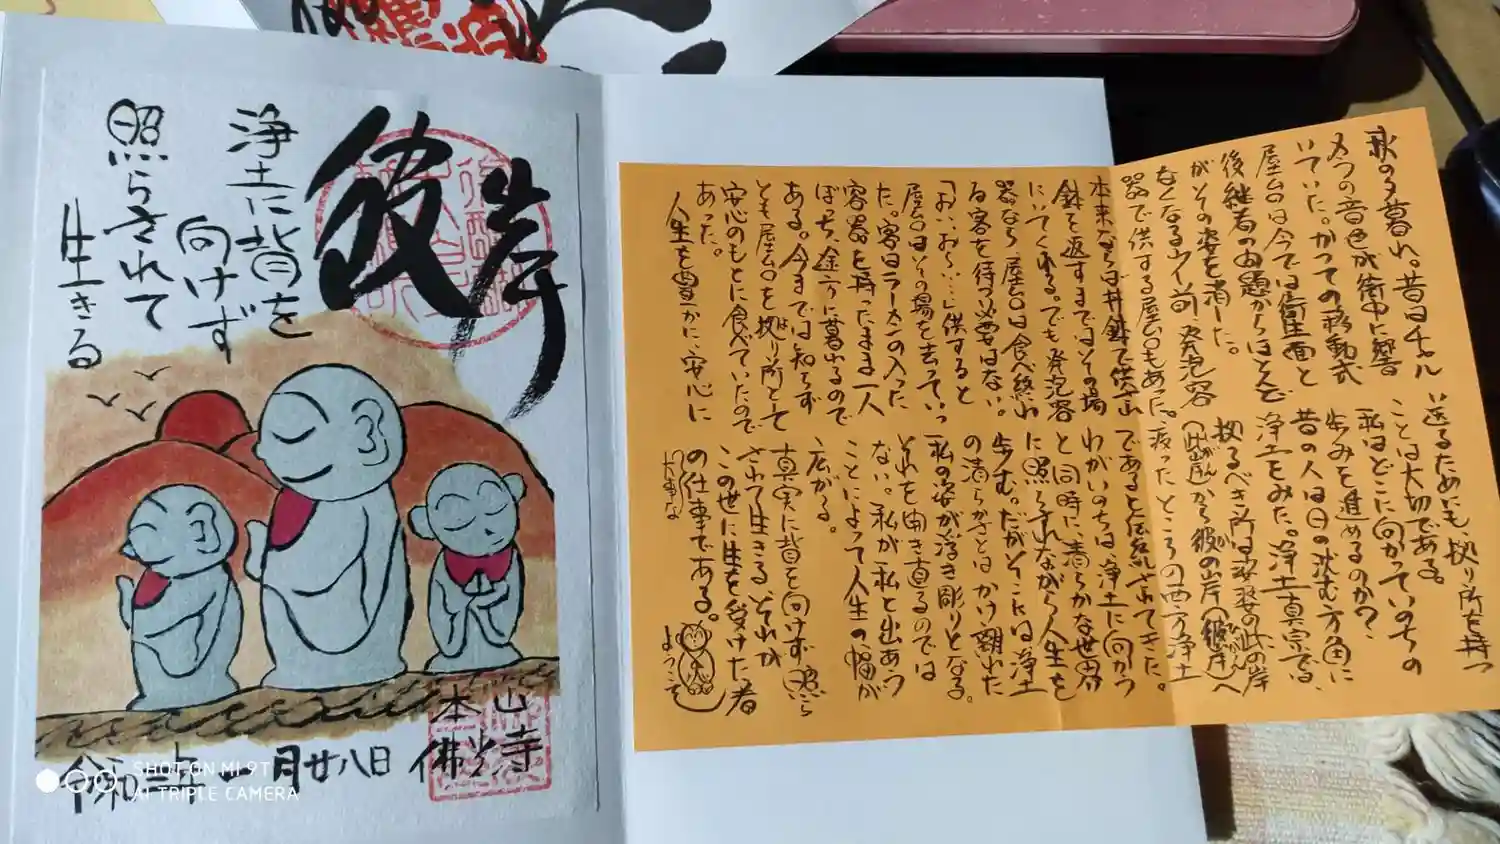 彼岸
浄土に背を
向けず
照らされて
生きる
本山
佛光寺
令和三年
月廿八日
SHOT ON MI 9T
AI TRIPLE CAMERA
秋の夕暮れ。昔はチャル
メラの音色が街中に響
いていた。かつての移動式
屋台は今では衛生面と
後継者の問題からほとんど
がその姿を消した。
なくなる少し前、発泡容
器で供する屋台もあった。
本来ならば丼鉢で供され
鉢を返すまではその場
にいてくれる。でも発泡容
器なら屋台は食べ終わ
る客を待つ必要はない。
「おい、お〜い…」供すると
屋台はその場を去っていっ
た。客はラーメンの入った
容器を持ったまま一人
ぼっち、途方に暮れるので
ある。今までは知らず
とも屋台を拠り所として
安心のもとに食べていたので
あった。
人生を豊かに安心に
送るためにも、拠り所を持つ
ことは大切である。
私はどこに向かっていのちの
歩みを進めるのか?
昔の人は日の沈む方角に
浄土をみた。浄土真宗でも、
拠るべき所は娑婆の此の岸
(此岸)から彼の岸(彼岸)へ
渡ったところの西方浄土
であると伝承されてきた。
わがいのちは、浄土に向かう
と同時に、清らかな世界
に照らされながら人生を
歩む。だがそこには浄土
の清らかさとはかけ離れた
私の姿が浮き彫りとなる。
それを開き直るのでは
ない。私が私と出あう
ことによって人生の幅が
広がる。
真実に背を向けず、照ら
されて生きる。それが
この世に生を受けた者
の仕事である。
大事な
ようこそ